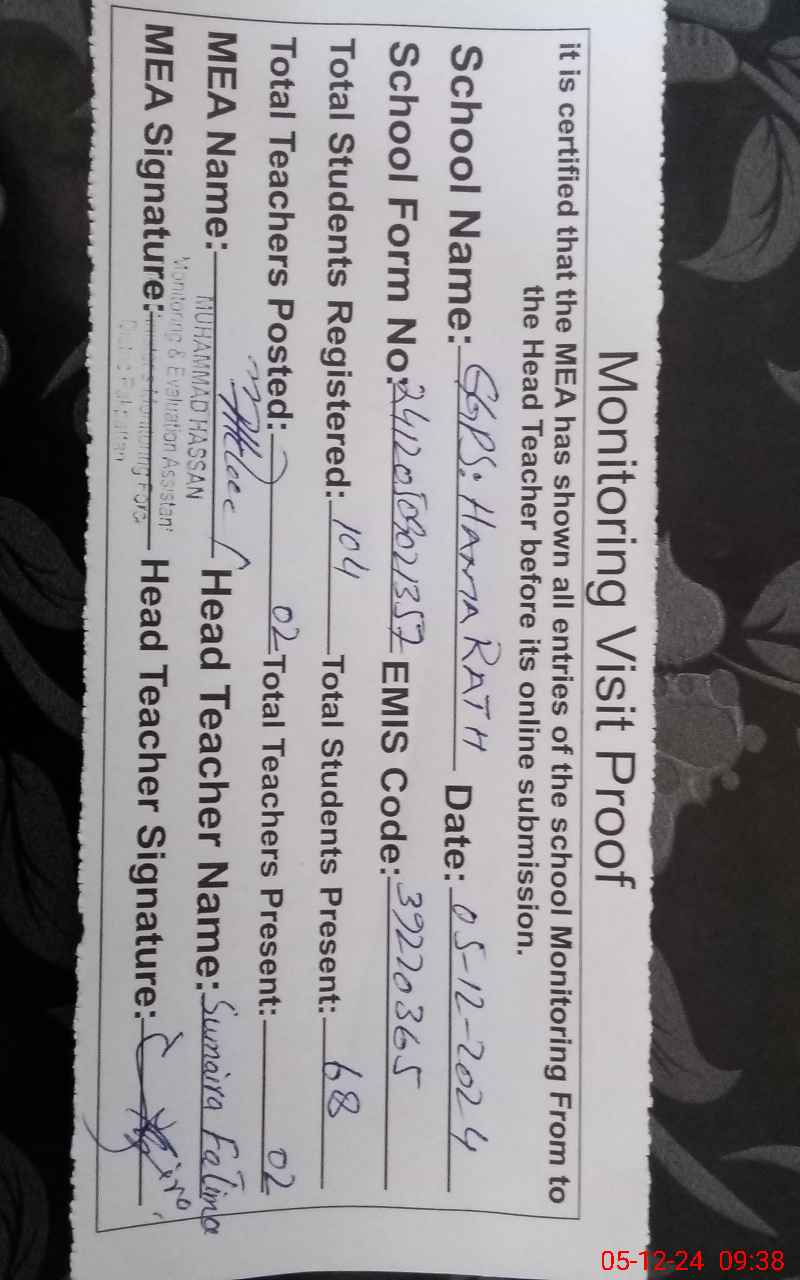 Monitoring Visit Proof
it is certified that the MEA has shown all entries of the school Monitoring From to
the Head Teacher before its online submission.
School Name: GGPS: HANTA RATH Date: 05-12-2024
School Form No: 24120509021357 EMIS Code: 39270365
Total Students Registered: 104 Total Students Present: 68
Total Teachers Posted: 02 Total Teachers Present: 02
MEA Name: MUHAMMAD HASSAN Head Teacher Name: Sumaira Fatima
Monitoring & Evaluation Assistant
MEA Signature: Monitoring Force Head Teacher Signature:
District Pakpattan
05-12-24 09:38